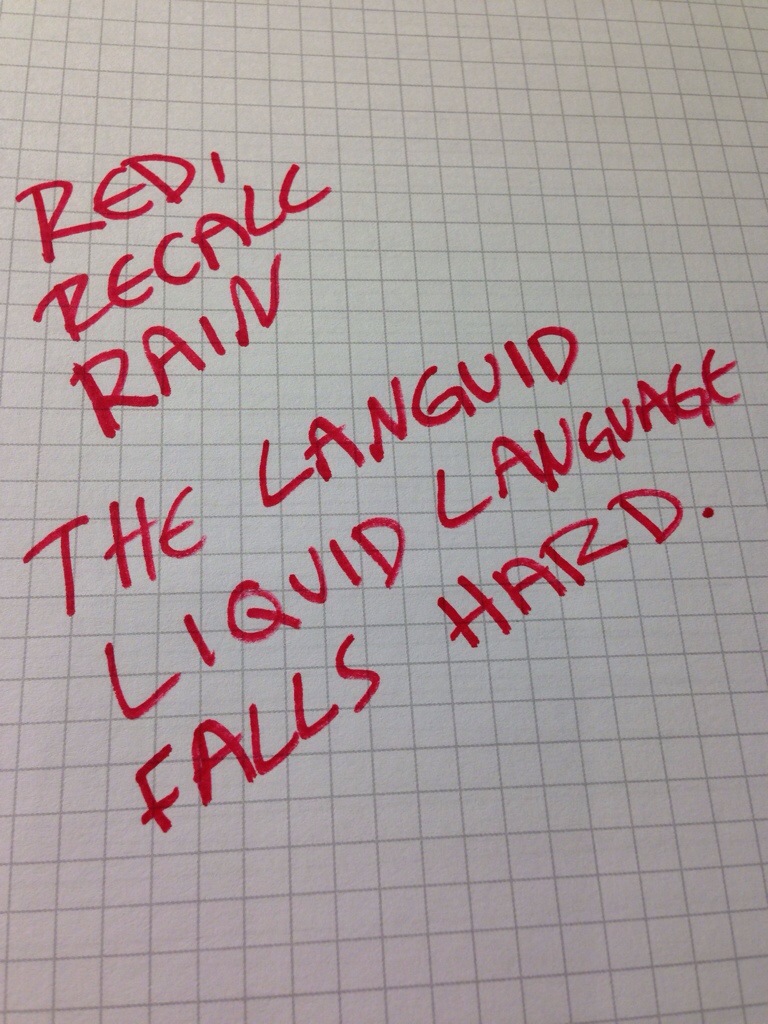 RED,
RECALL
RAIN
THE LANGUID
LIQUID LANGUAGE
FALLS HARD.